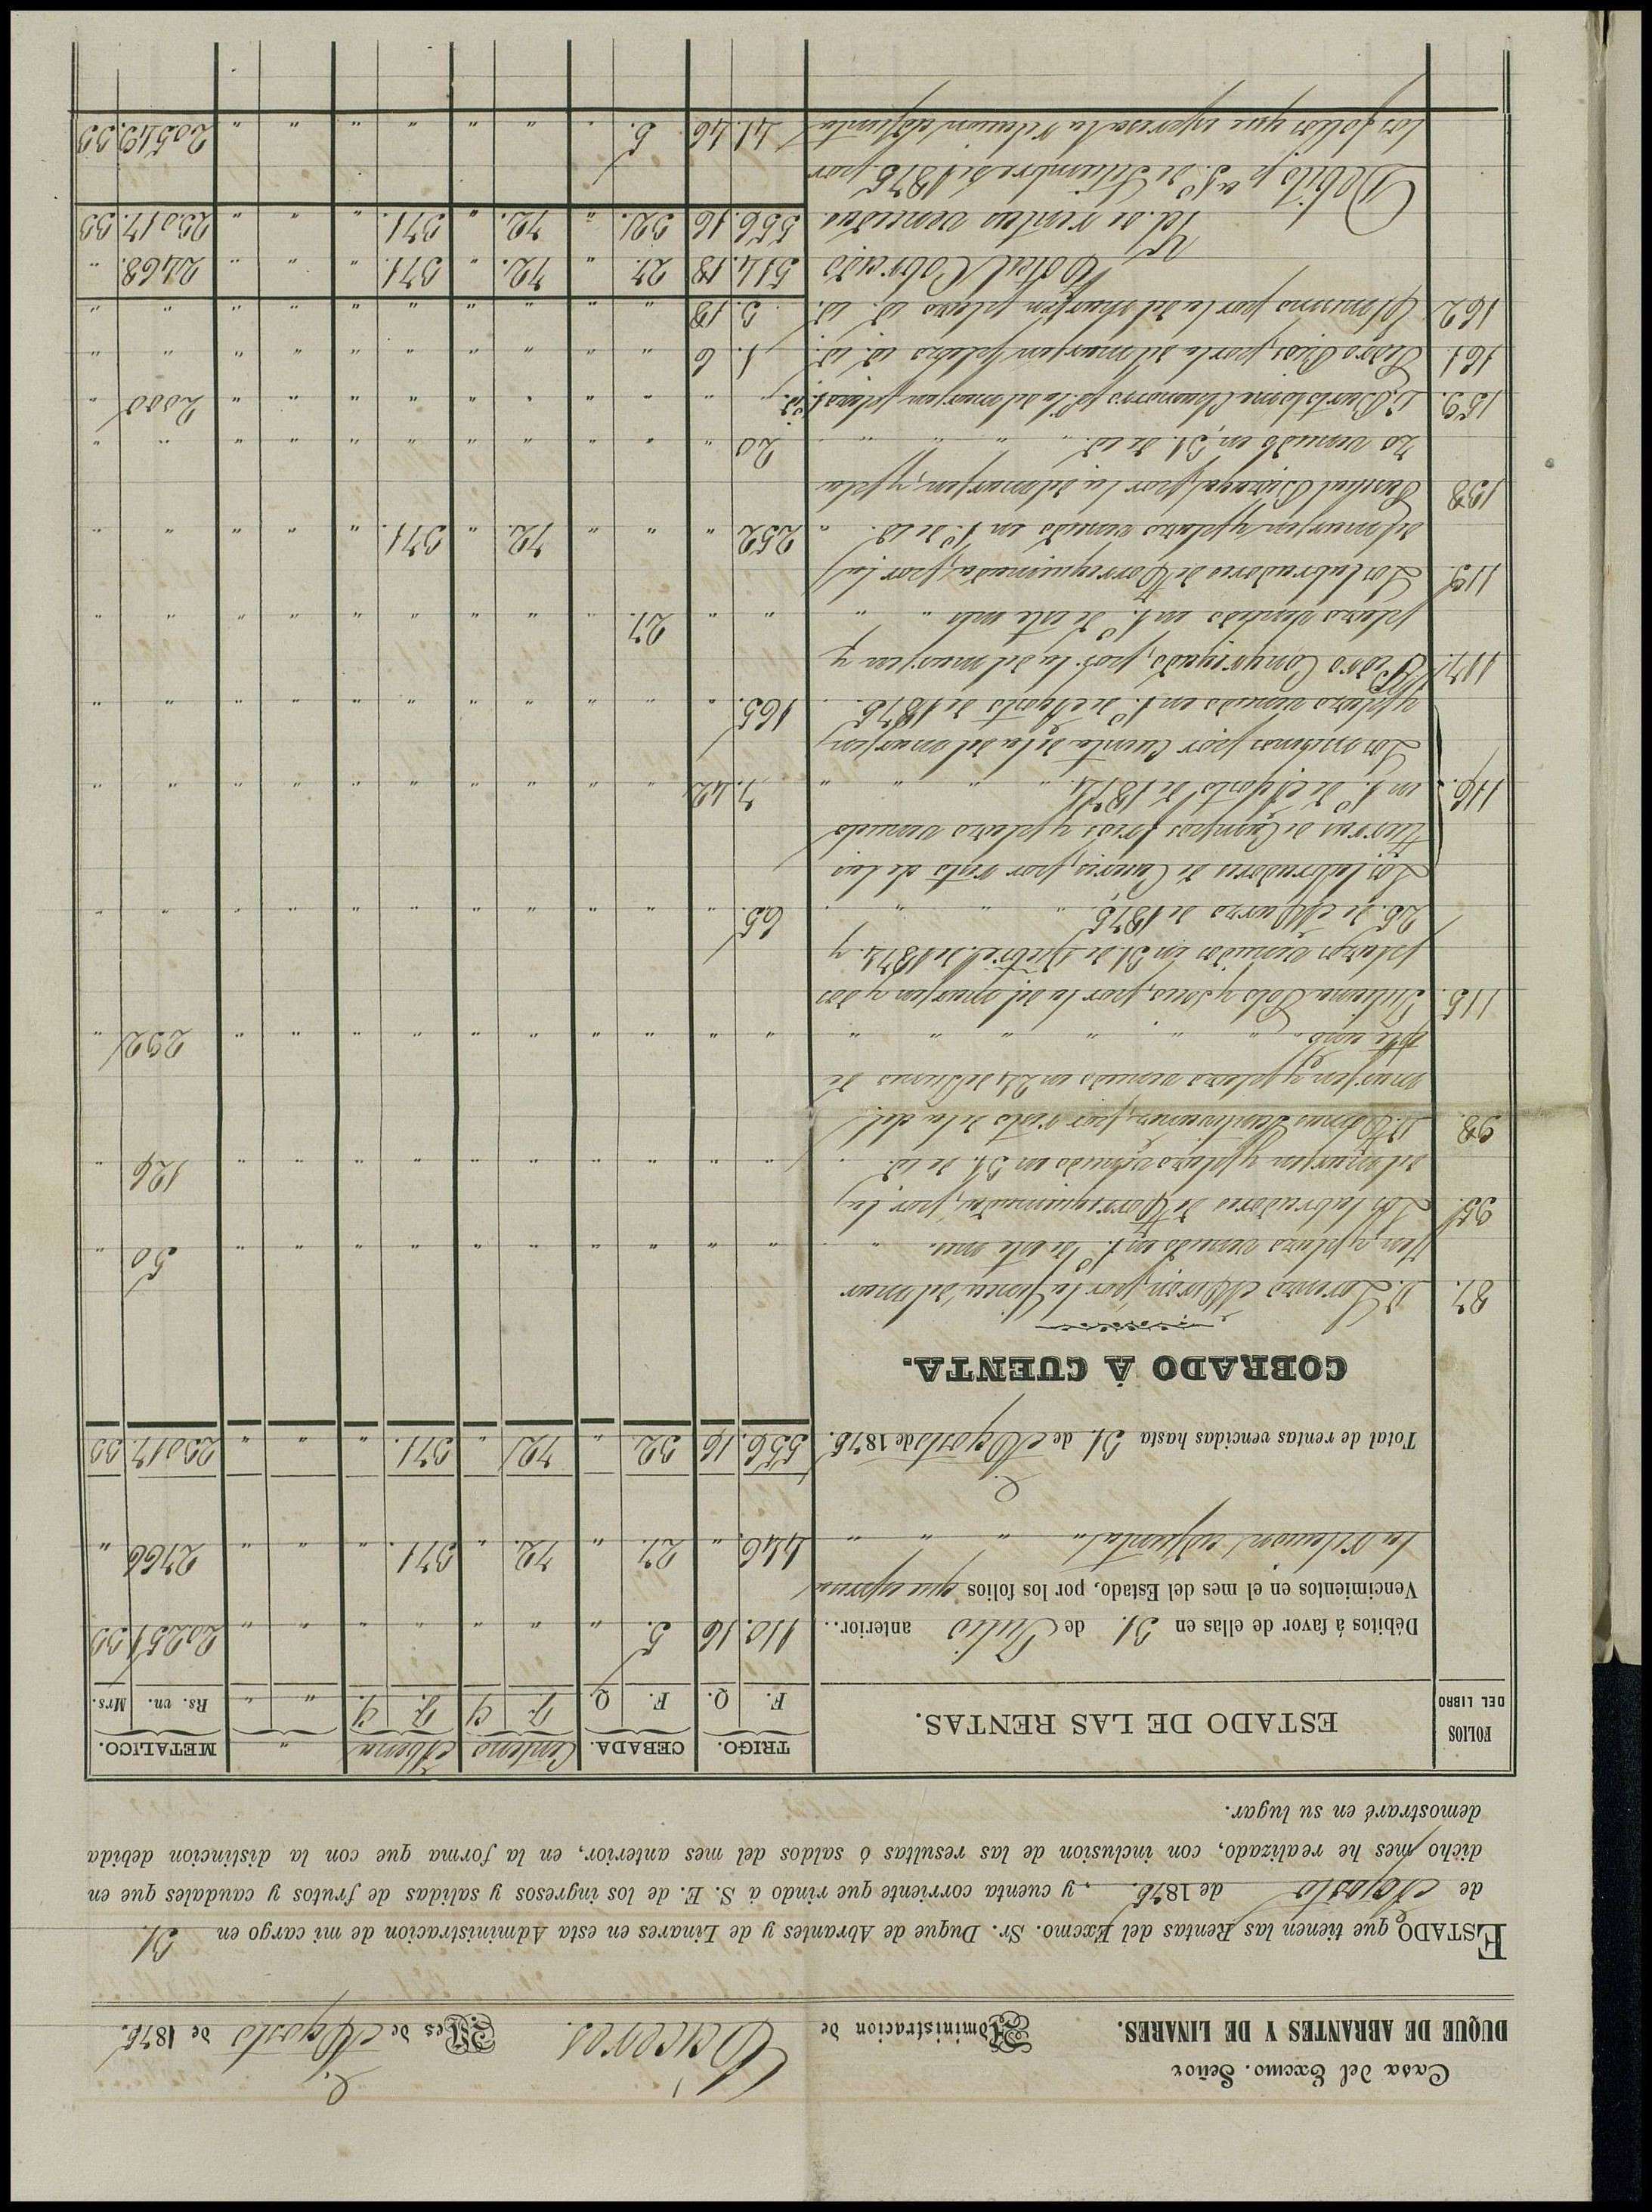 Casa del Excmo. Señor
DUQUE DE ABRANTES Y DE LINARES.
Administracion de Cáceres. Mes de Agosto de 1875.
ESTADO que tienen las Rentas del Excmo. Sr. Duque de Abrantes y de Linares en esta Administracion de mi cargo en 31.
de Agosto de 1875. y cuenta corriente que rindo á S. E. de los ingresos y salidas de frutos y caudales que en
dicho mes he realizado, con inclusion de las resultas ó saldos del mes anterior, en la forma que con la distincion debida
demostraré en su lugar.
FOLIOS DEL LIBRO ESTADO DE LAS RENTAS. TRIGO. CEBADA. Centeno Abena " METALICO.
F. Q. F. Q. F. Q F. Q. " " Rs. vn. Mrs.
Débitos á favor de ellas en 31. de Julio anterior.. 110. 16 5. " " " " " " " 20251 33
Vencimientos en el mes del Estado, por los folios que espresa
la relacion adjunta " " " " 446. " 27. " 72. " 371. " " " 2766 "
Total de rentas vencidas hasta 31 de Agosto de 1875. 556. 16 32. " 72 " 371. " " " 23017. 33
COBRADO Á CUENTA.
87. D. Lorenzo por la finca del mar
jen, y plazo vencido en 1.º de este mes. " " " " " " " " " " " 50 "
95. Los labradores de Torrequemada, por la
del marjen y plazo vencido en 31. de id. " " " " " " " " " " 126 "
98. D. Tomas por resto de la del
marjen y plazo vencido en 24 de Junio de
este año. " " " " " " " " " " " " " " " 292 "
115. Juliana Polo y socios, por la del marjen y dos
plazos vencidos en 31. de Dicbre. de 1874. y
25. de Marzo de 1875. " " " 65. " " " " " " " " " " "
116. Los labradores de Caceres, por resto de las
tierras de Campos frios y plazo vencido
en 1.º de Agosto de 1874. " " " " 7. 42 " " " " " " " " " "
Los mismos por cuenta de la del marjen
y plazo vencido en 1.º de Agosto de 1875. 165. " " " " " " " " " " "
117. Pedro por la del marjen y
plazo vencido en 1.º de este mes " " " " 27. " " " " " " " " "
119. Los labradores de Torrequemada, por la
del marjen y plazo vencido en 1.º de id. " 252 " " " 72. " 371. " " " " "
158 por la del marjen, y pla
zo vencido en 31. de id. " " " " 20 " " " " " " " " " " "
159. D. Bartolome Chamorro p.r la del marjen y plazo id. " " " " " " " " " " 2000 "
161. Pedro Rios, por la del marjen y plazo id. id. 1. 6 " " " " " " " " " "
162 El mismo por la del marjen y plazo id. id. 3. 18 " " " " " " " " " "
Total Cobrado 514. 18 27. " 72. " 371. " " " 2468. "
Yd. de rentas vencidas 556. 16 32. " 72. " 371. " " " 23017. 33
Debito p.a 1.º de Setiembre de 1875 por
los folios que espresa la relacion adjunta 41. 46 5. " " " " " " " 20549. 33